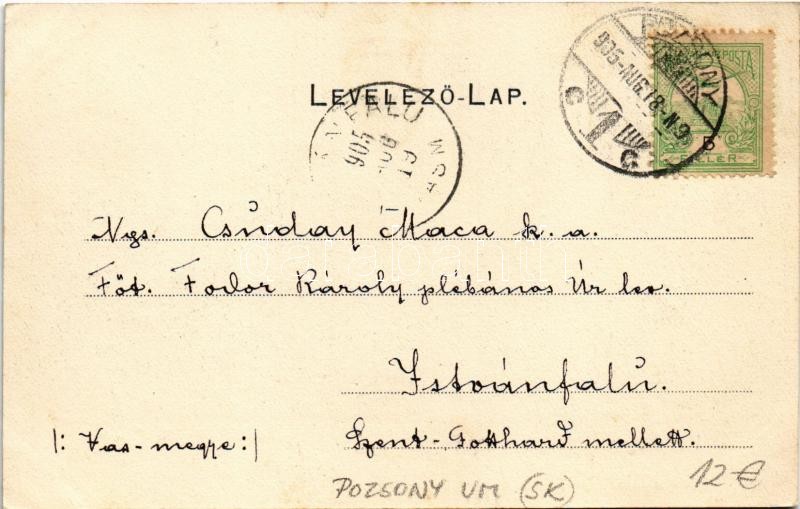 POZSONY
905 AUG. 18. N 9
C 1 C
POSTA
5
FILLÉR
LEVELEZŐ-LAP.
905
AUG
19
Ngs. Csúday Maca k. a.
Főt. Fodor Károly plébános Úr lev.
Istvánfalú.
|: Vas-megye :| Szent-Gotthard mellett.
POZSONY UM (SK) 12€